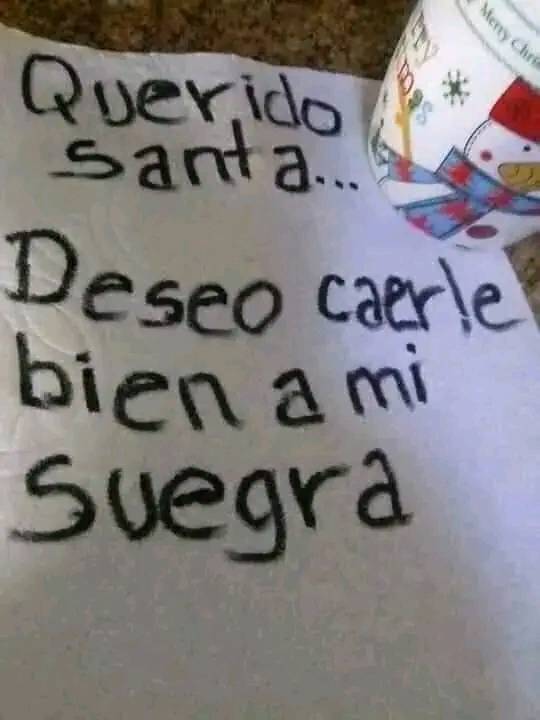 Querido
santa...
Deseo caerle
bien a mi
suegra
Merry Chri